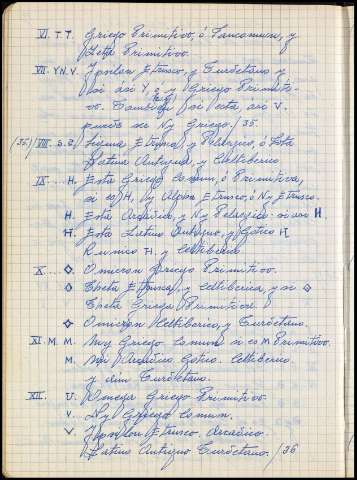 VI. T.T. Griego Primitivo, ó Comun, y
Zeta Primitivo.
VII. Y.N.V. Ypsilon Etrusco, y Turdetano y
asi Y, y Griego Primiti-
vo. Tambien si está asi V.
puede ser Ny Griego. / 35
(35) VIII. S.S. Sigma Etrusca, y Pelasga, ó Zeta
Latina Antigua, y Celtiberica
IX ... H. Eta Griego Comun, ó Primitiva,
si es H, Ny Alpha Etrusco, ó Ny Etrusco.
H. Eta Arcadia, y Ny Pelasgico si asi H.
Ħ. Eta Latino Antiguo, y Gotico Ħ
Runico Ħ, y Celtiberia
X ... ◇. Omicron Griego Primitivo.
Theta Etrusca, y Celtiberica, y si ◇
Theta Griega Primitiva
◇ Omicron Celtiberico, y Turdetano.
XI. M. M. Moy Griego Comun si es M Primitivo.
M. Mi Arcadico Gotico. Celtiberico
y Turdetano.
XII. U. Omega Griego Primitivo.
V. Ny Griego Comun.
V. Ypsilon Etrusco. Arcadico.
Latino Antiguo Turdetano. / 36